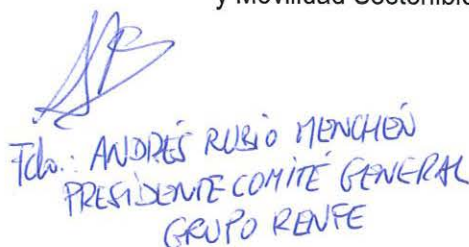 y Movilidad Sostenible
Fdo.: ANDRÉS RUBIO MENCHÉN
PRESIDENTE COMITÉ GENERAL
GRUPO RENFE